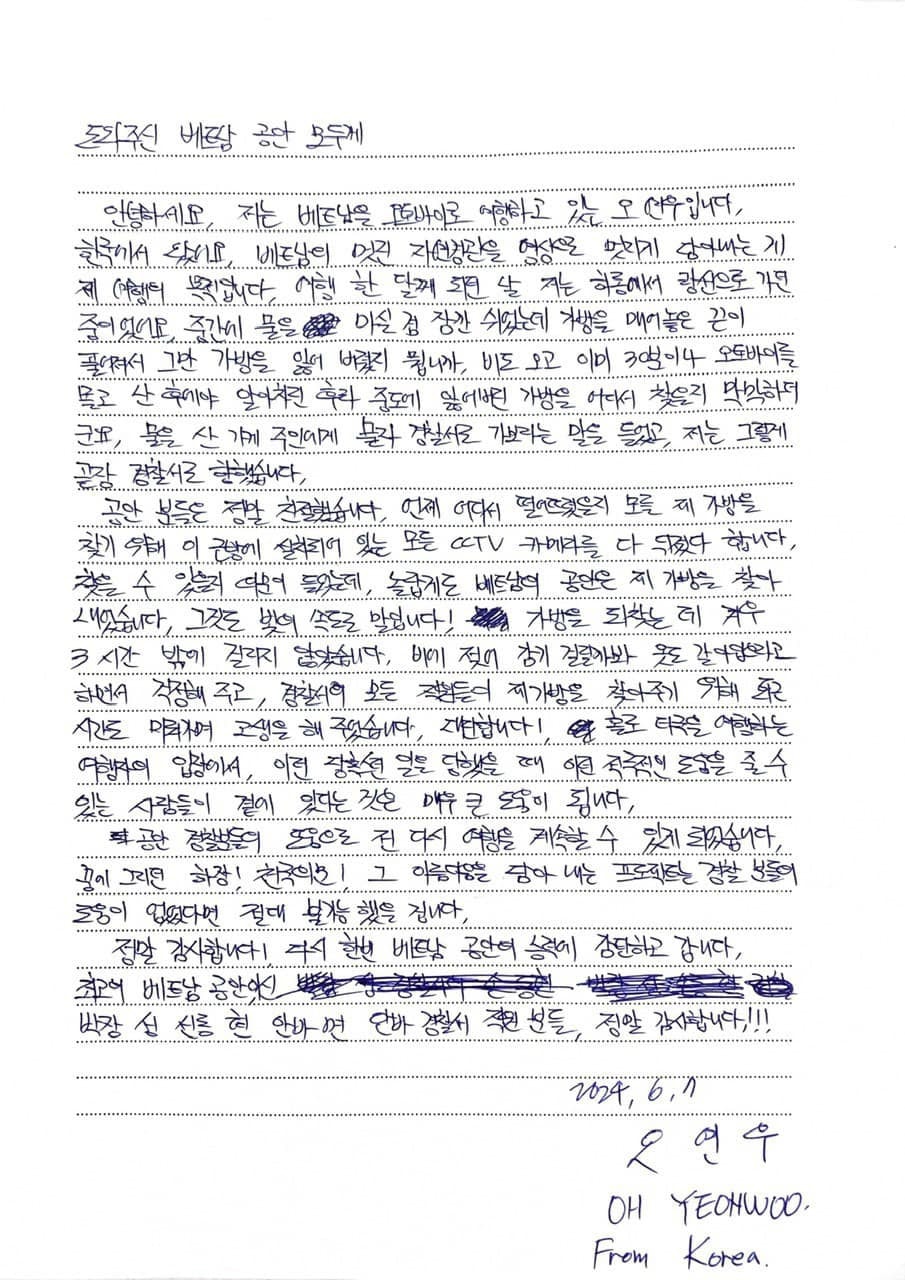 도와주신 베트남 공안 모두께
안녕하세요, 저는 베트남을 오토바이로 여행하고 있는 오연우입니다.
한국에서 왔어요. 베트남의 멋진 자연경관을 영상으로 멋지게 담아내는 게
제 여행의 목적입니다. 여행 한 달째 되던 날 저는 하롱에서 랑선으로 가던
중이었어요. 중간에 물을 마실 겸 잠깐 쉬었는데 가방을 매어놓은 끈이
풀어져서 그만 가방을 잃어 버렸지 뭡니까. 비도 오고 이미 30분이나 오토바이를
몰고 간 후에야 알아차린 후라 중도에 잃어버린 가방을 어디서 찾을지 막막하더
군요. 물을 산 가게 주인에게 물라 경찰서로 가보라는 말을 들었고, 저는 그렇게
곧장 경찰서로 향했습니다.
공안 분들은 정말 친절했습니다. 언제 어디서 떨어뜨렸을지 모를 제 가방을
찾기 위해 이 근방에 설치되어 있는 모든 CCTV 카메라를 다 뒤졌다 합니다.
찾을 수 있을지 의문이 들었는데, 놀랍게도 베트남의 공안은 제 가방을 찾아
내었습니다. 그것도 빛의 속도로 말입니다! 가방을 되찾는 데 겨우
3시간 밖에 걸리지 않았습니다. 비에 젖어 감기 걸릴까봐 옷도 갈아입으라고
하면서 걱정해 주고, 경찰서의 모든 직원들이 제 가방을 찾아주기 위해 퇴근
시간도 미뤄가며 고생을 해 주었습니다. 대단합니다! 홀로 타국을 여행하는
여행자의 입장에서, 이런 당혹스런 일을 당했을 때 이런 적극적인 도움을 줄 수
있는 사람들이 곁에 있다는 것은 매우 큰 도움이 됩니다.
공안 경찰분들의 도움으로 전 다시 여행을 계속할 수 있게 되었습니다.
꿈에 그리던 하장! 천국이오! 그 아름다움을 담아 내는 프로젝트는 경찰 분들의
도움이 없었다면 절대 불가능 했을 겁니다.
정말 감사합니다! 다시 한번 베트남 공안의 능력에 감탄하고 갑니다.
최고의 베트남 공안이신
박장 성 선동 현 안바 면 단바 경찰서 직원 분들, 정말 감사합니다!!!
2024. 6. 7
오 연 우
OH YEONWOO.
From Korea.